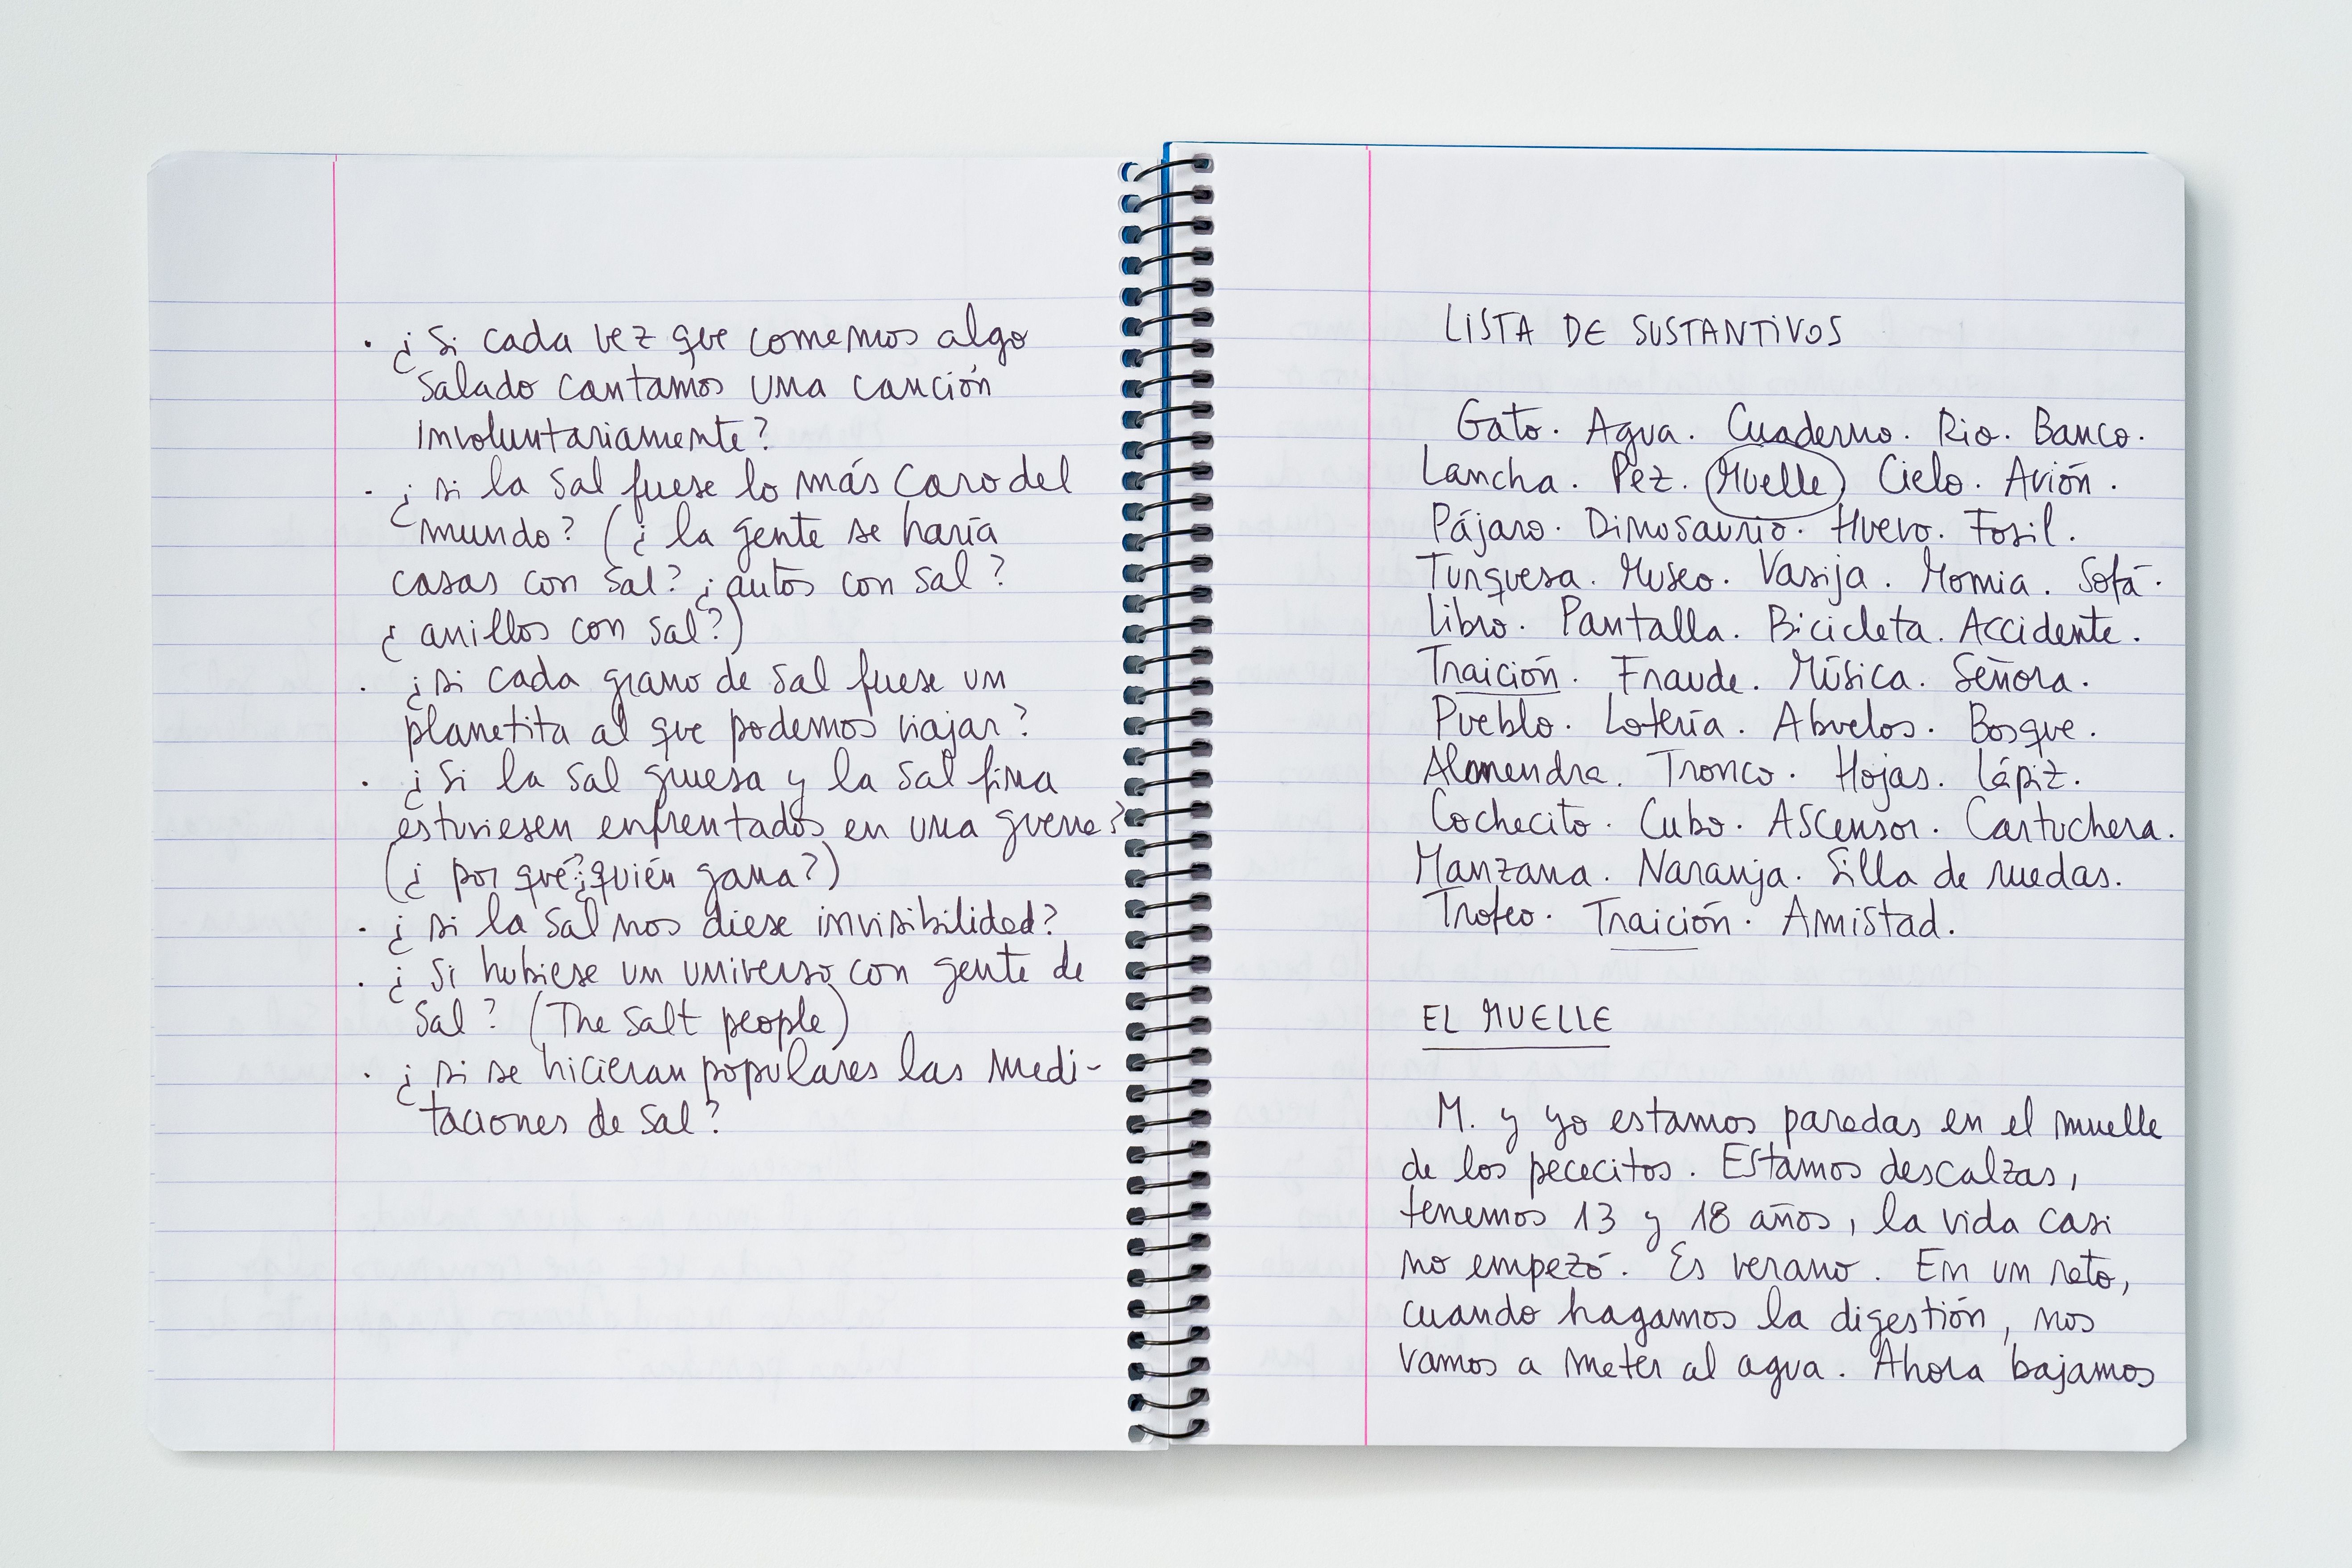 · ¿Si cada vez que comemos algo
salado cantamos una canción
involuntariamente?
· ¿si la sal fuese lo más caro del
mundo? (¿la gente se haría
casas con sal? ¿autos con sal?
¿anillos con sal?)
· ¿si cada grano de sal fuese un
planetita al que podemos viajar?
· ¿Si la sal gruesa y la sal fina
estuviesen enfrentados en una guerra?
(¿por qué? ¿quién gana?)
· ¿si la sal nos diese invisibilidad?
· ¿si hubiese un universo con gente de
sal? (The salt people)
· ¿si se hicieran populares las medi-
taciones de sal?
LISTA DE SUSTANTIVOS
Gato. Agua. Cuaderno. Rio. Banco.
Lancha. Pez. Muelle Cielo. Avión.
Pájaro. Dinosaurio. Huevo. Fosil.
Turquesa. Museo. Vasija. Momia. Sofá.
Libro. Pantalla. Bicicleta. Accidente.
Traición. Fraude. Música. Señora.
Pueblo. Lotería. Abuelos. Bosque.
Almendra. Tronco. Hojas. Lápiz.
Cochecito. Cubo. Ascensor. Cartuchera.
Manzana. Naranja. Silla de ruedas.
Trofeo. Traición. Amistad.
EL MUELLE
M. y yo estamos paradas en el muelle
de los pececitos. Estamos descalzas,
tenemos 13 y 18 años, la vida casi
no empezó. Es verano. En un rato,
cuando hagamos la digestión, nos
vamos a meter al agua. Ahora bajamos